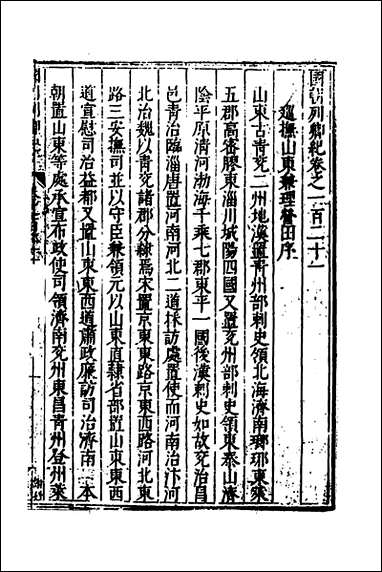 國朝列卿紀卷之一百二十一
巡撫山東兼理營田序
山東古青兗二州地漢置青州部刺史領北海濟南瑯琊東萊
五郡高密膠東淄川城陽四國又置兗州部刺史領東泰山濟
陰平原清河渤海千乘七郡東平一國後漢刺史如故兗治昌
邑青治臨淄唐置河南河北二道採訪處置使而河南治汴河
北治魏以青兗諸郡分隷焉宋置京東東路京東西路河北東
路三安撫司並以守臣兼領元以山東直隷省部置山東東西
道宣慰司治益都又置山東東西道肅政廉訪司治濟南　本
朝置山東等處承宣布政使司領濟南兗州東昌青州登州萊